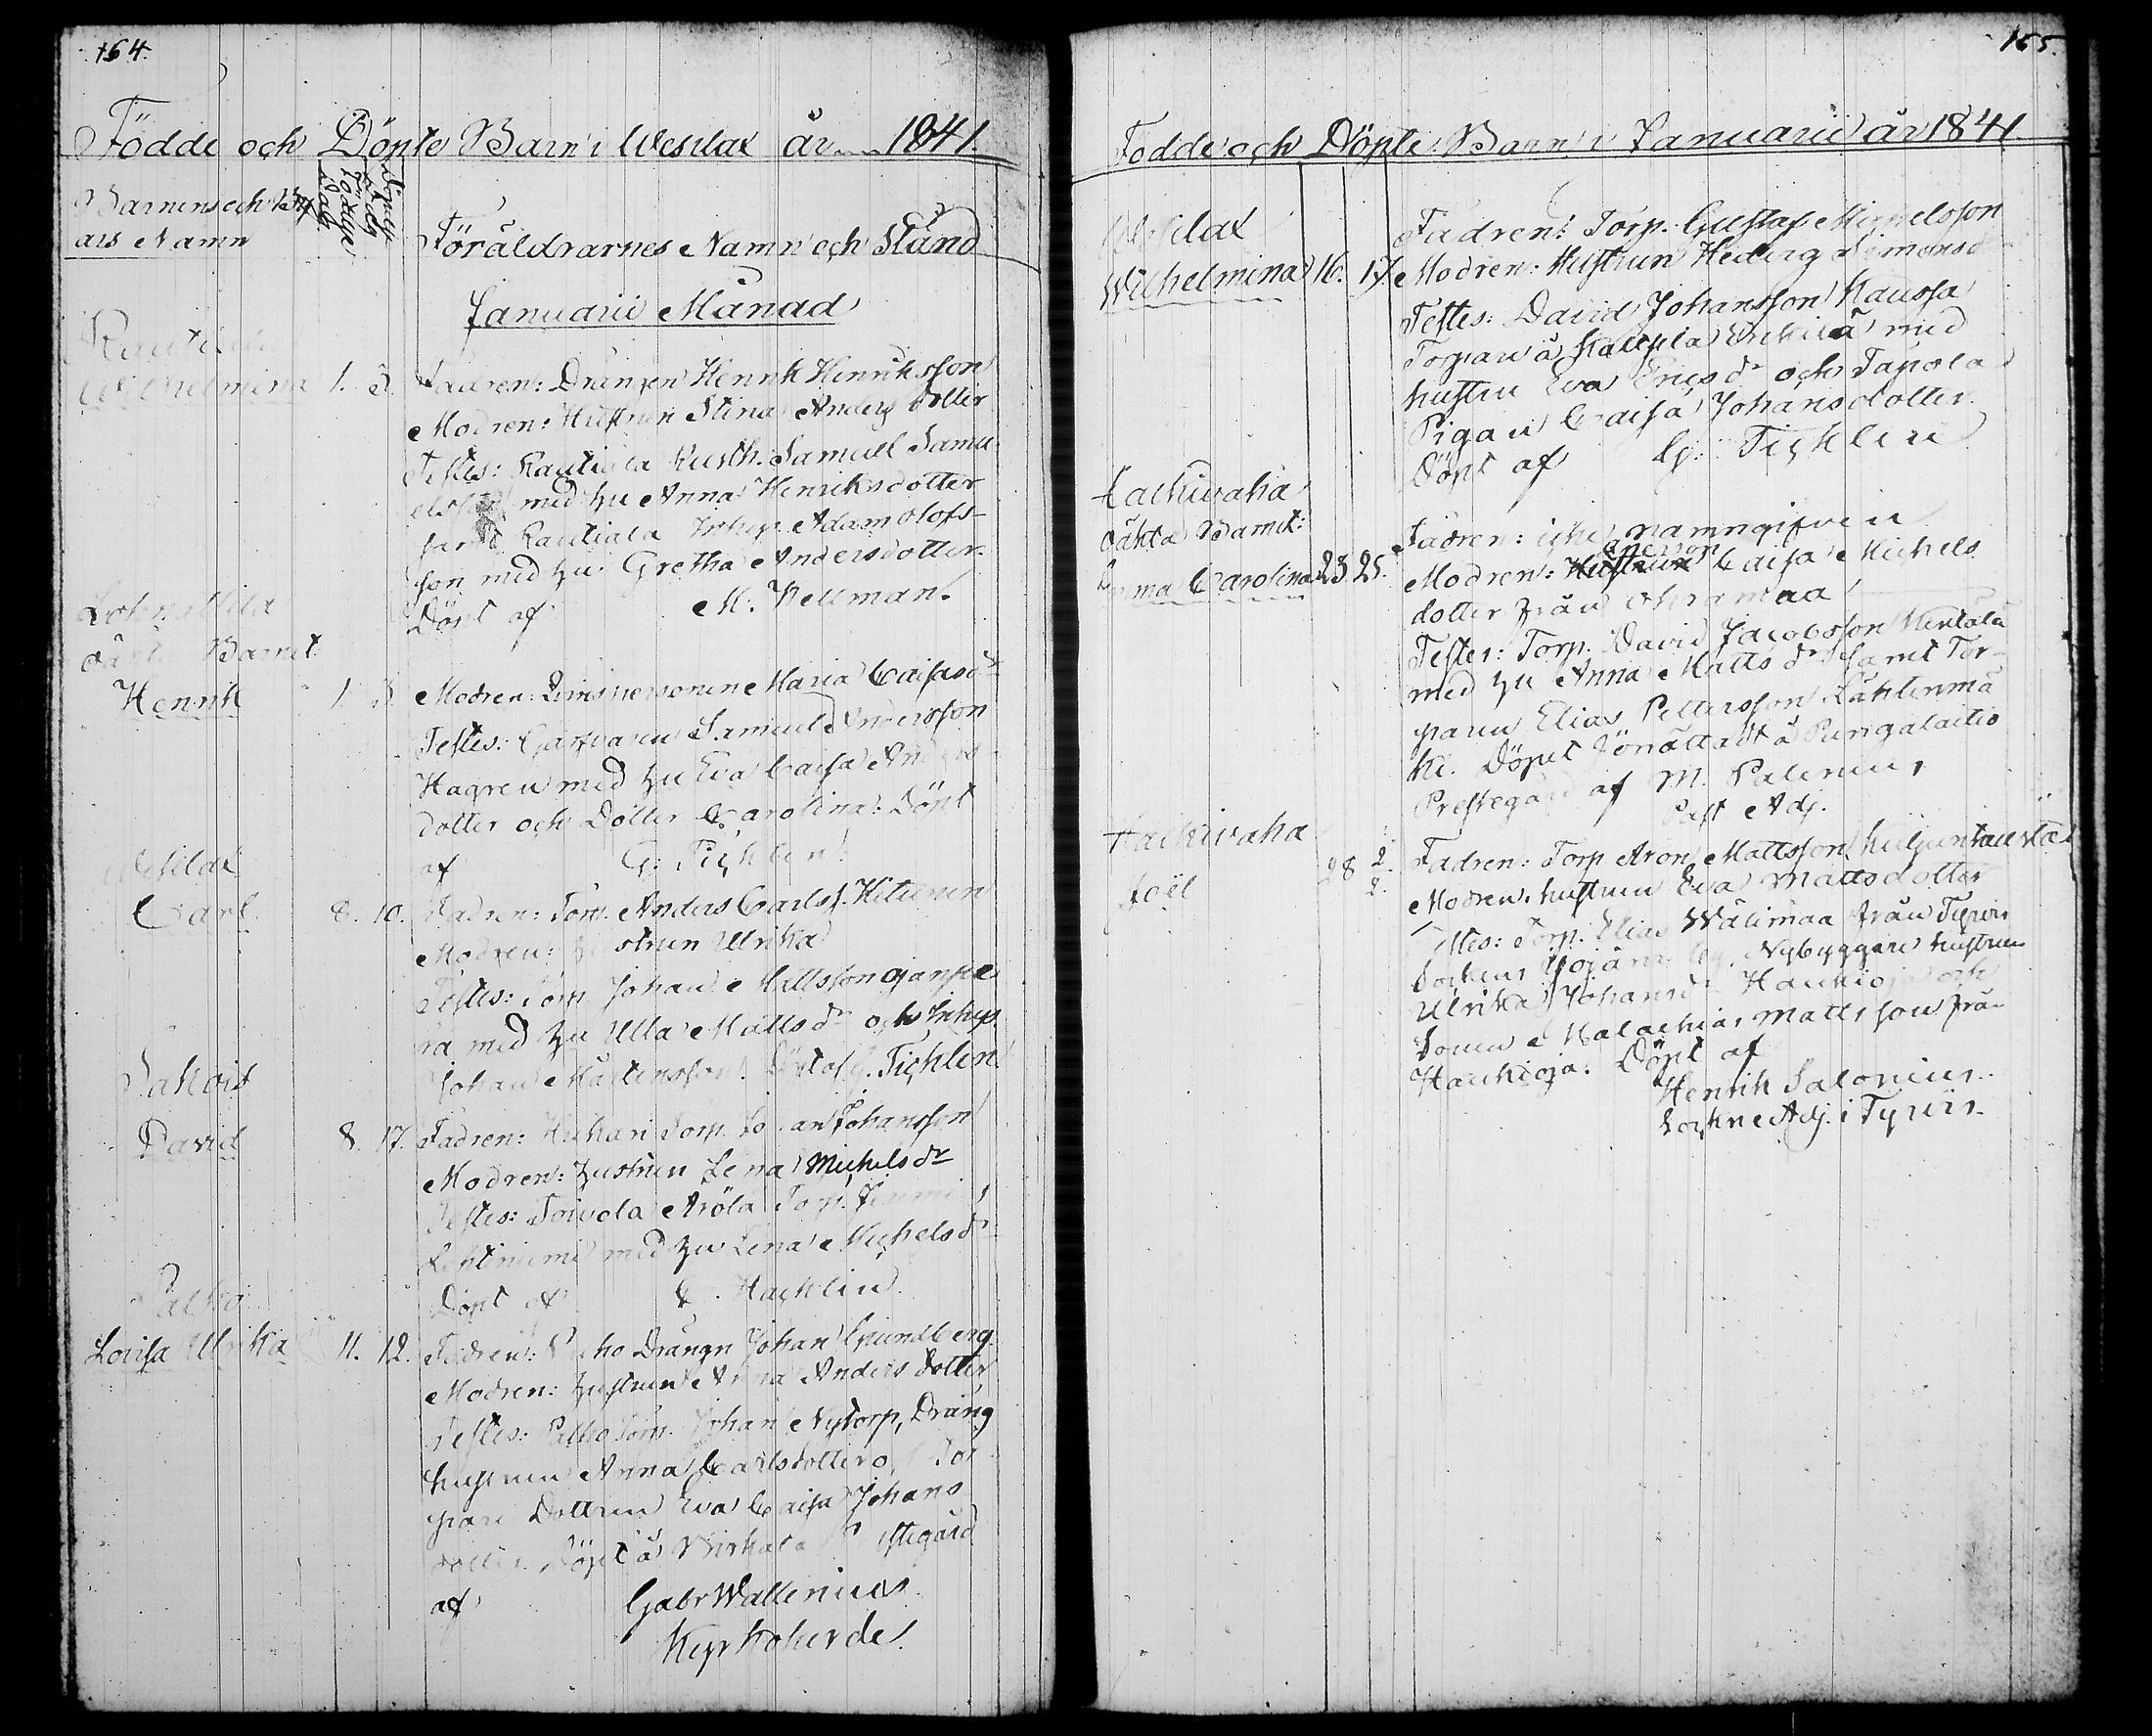 164.
Födde och Döpte Barn i Wesilax år 1841.
Barnens och Byars Namn
Födelse Dag
Döpelse Dag
Föräldrarnes Namn och Stånd
Januarii Månad
Rautiala
Wilhelmina 1. 3. Fadren: Drängen Henrik Henriksson
Modren: Hustrun Stina Anders dotter
Testes: Rautiala Rusth. Samuel Samu-
elsson med hu Anna Henriksdotter
samt Rautiala Inhys. Adam Olofs-
son med hu Gretha Andersdotter.
Döpt af M. Hellman.
oäkta Barnet
Henrik 1. 3. Modren: Qvinspersonen Maria Caisasdr
Testes: Garfvaren Samuel Andersson
Hagren med hu Eva Caisa Anders
dotter och Dotter Carolina: Döpt
af G: Tichlen
Wesilax
Carl 8. 10. Fadren: Torp. Anders Carlss. Hituinen
Modren: Hustrun Ulrika
Testes: Torp. Johan Mattsson Ojanpe
rä med hu Ulla Matts dr och Inhys.
Johan Mårtensson. Döpt af G. Tichlen
Sakois
David 8. 17. Fadren: Torp. Johan Johansson
Modren: hustrun Lena Michels dr
Testes: Toivola Torp.
Lehtiniemi med hu Lena Michels dr
Döpt af Hachlin.
Palho
Lovisa Ulrika 11. 12. Fadren: Palho Drängn Johan Grundberg.
Modren: hustrun Anna Anders dotter
Testes: Palho Torp. Johan Nytorp, Dräng
hustrun Anna Carlsdotter o Tor
pare Dottren Eva Caisa Johans
dotter. Döpt å Birkala Prestegård
af Gabr Wallenius
Kyrkoherde.
165.
Födde och Döpte Barn i Januarii år 1841.
Wesilax Fadren: Torp. Gustaf Michelsson
Wilhelmina 16. 17. Modren: Hustrun Hedvig Simonsd
Testes: David Johansson Kaussa
Torparn å med
hustru Eva Ericsdr och Tapola
Pigan Caisa Johansdotter
Döpt af G: Tichlen
Hachivaha
oäkta Barnet: Fadren: icke namngifven
Emma Carolina 23. 25. Modren: Hustrun Caisa Michels
dotter från
Testes: Torp. David Jacobsson
med hu Anna Matts dr samt Tor-
paren Elias Pettersson Lähtenmä
ki. Döpet förrättadt å Pungalaitio
Prestegård af M. Palenius
Past Adj.
Hachivaha
Joël 28 2. 2. Fadren: Torp Aron Mattsson
Modren: hustrun Eva Matts dotter
Testes: Torp. Elias Wälimaa från Tyrvis
Socken, Nybyggare hustrun
Ulrika Johansdr Haukioja och
Sonen Malachias Mattsson från
Haukioja. Döpt af
Henrik Salonius.
Sockne Adj. i Tyrvis.